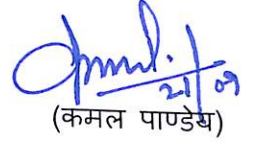 21/09
(कमल पाण्डेय)